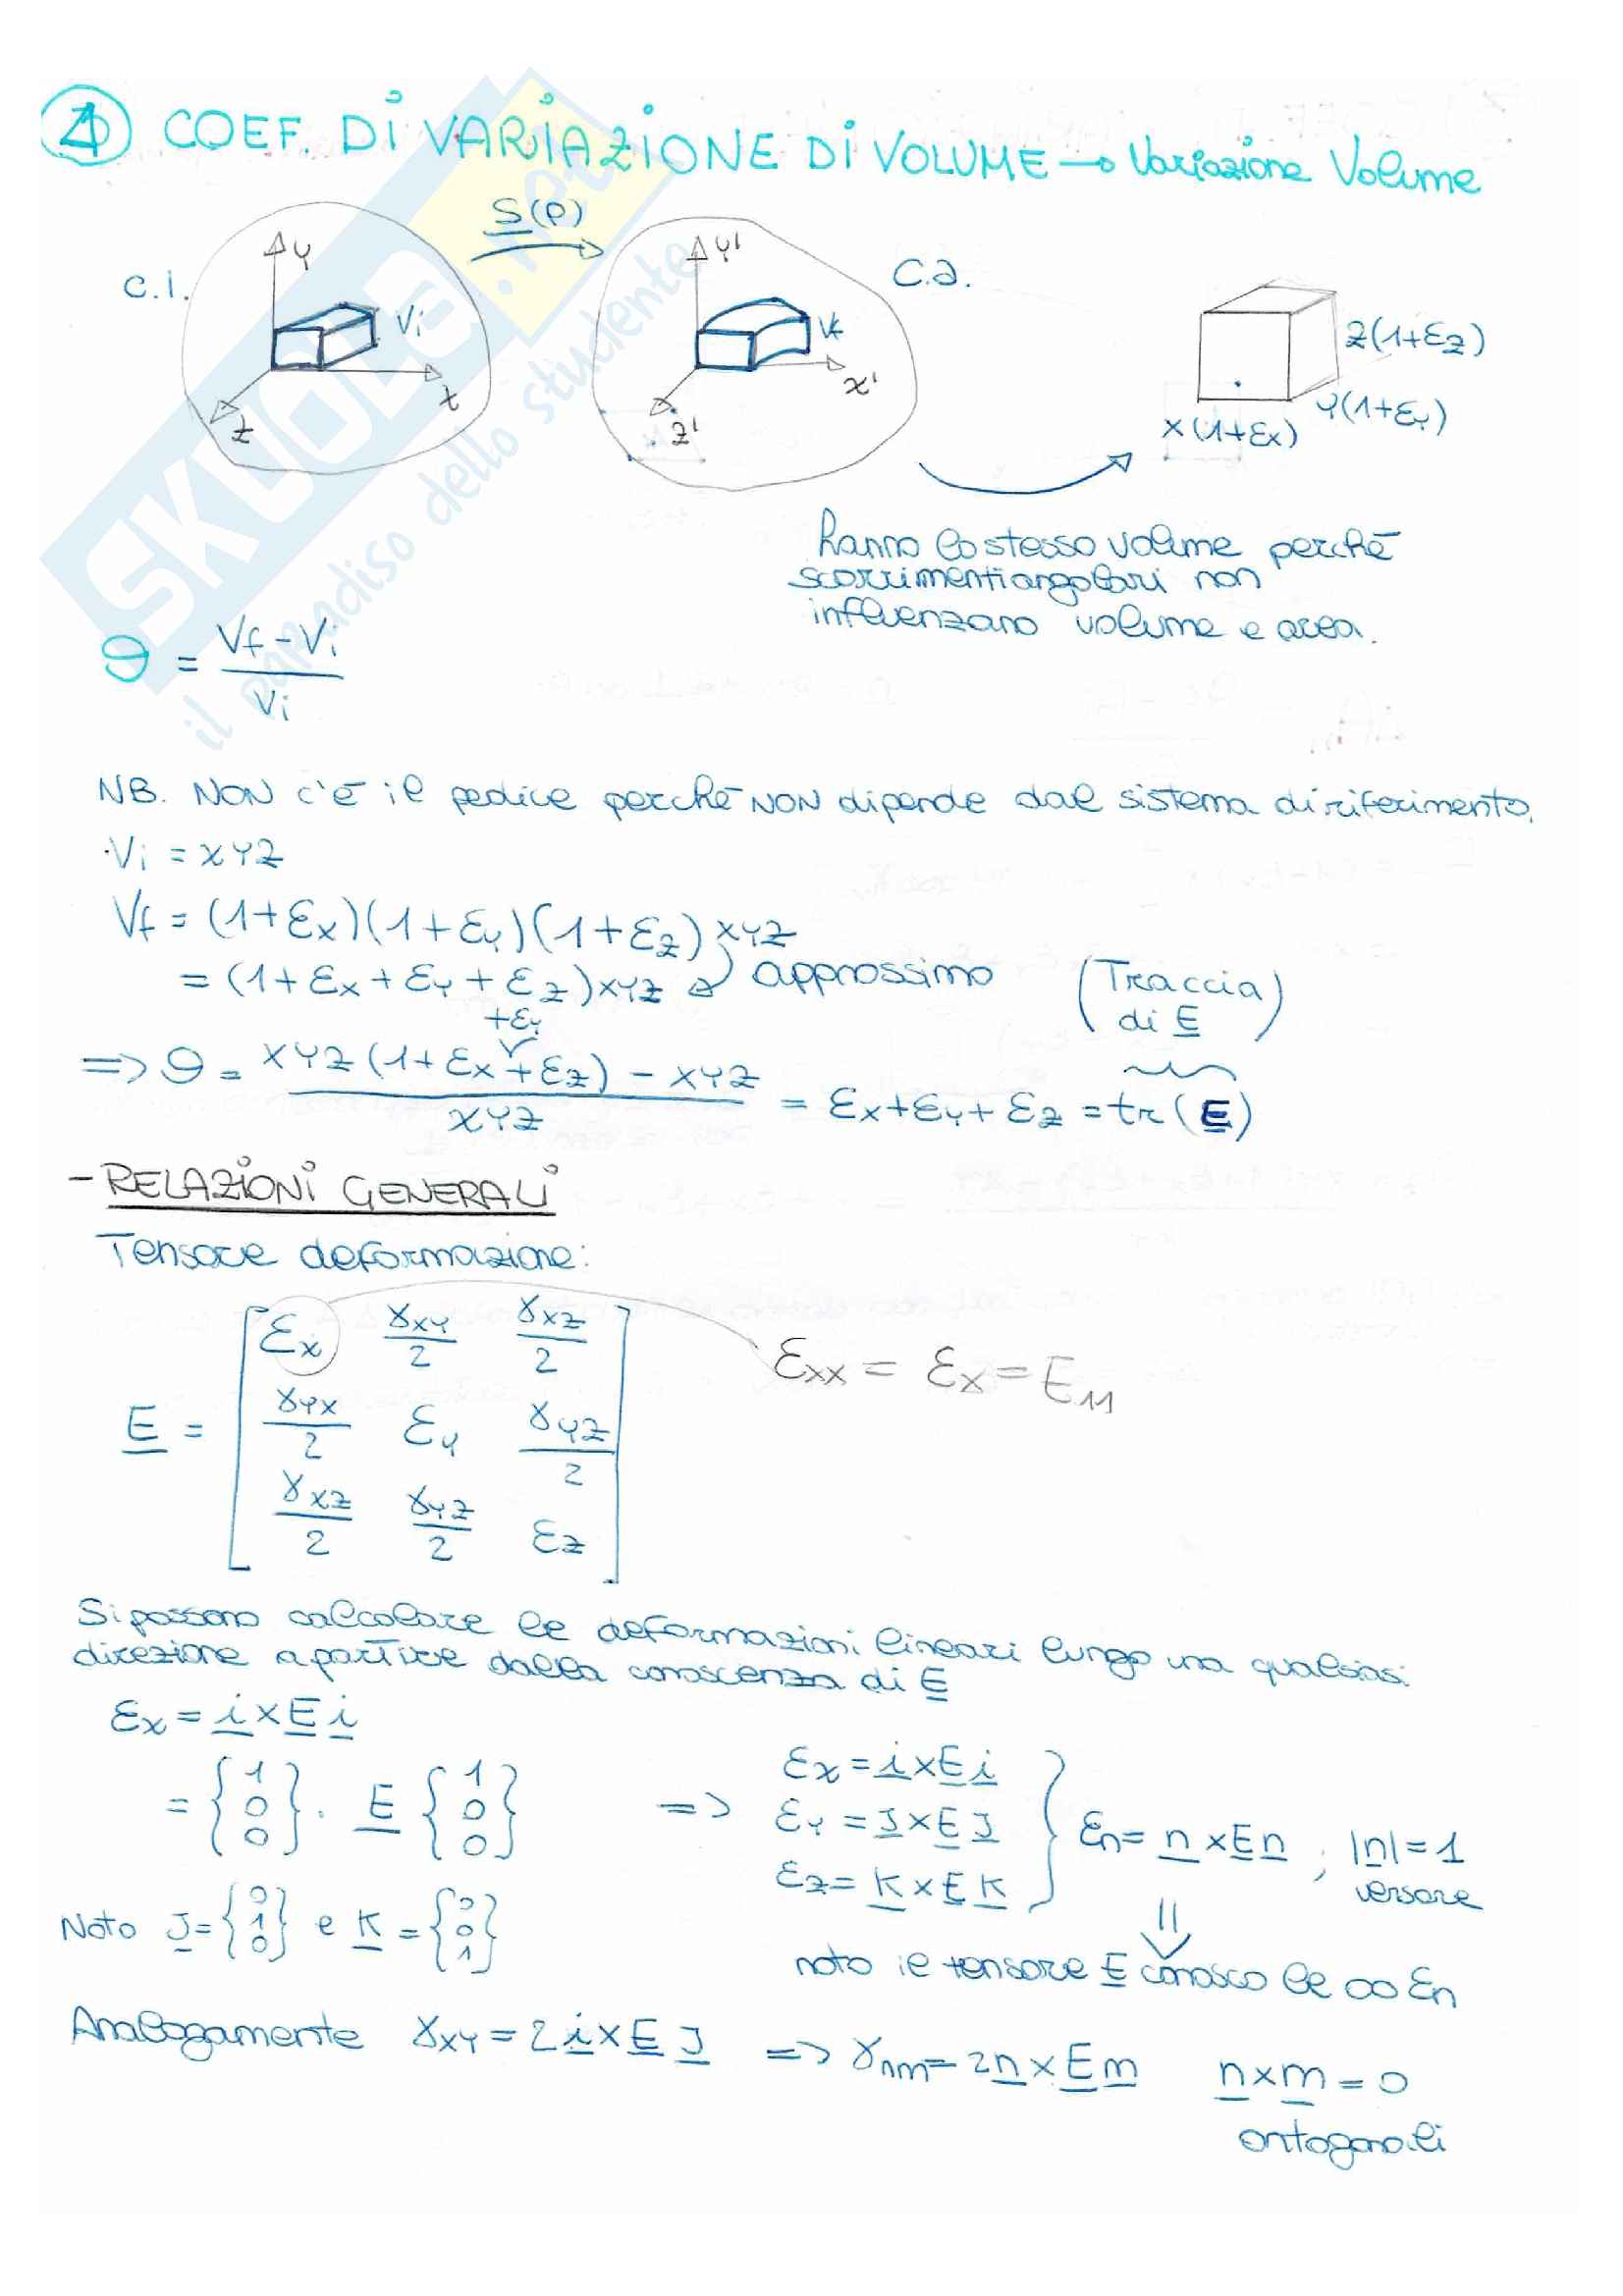 ④ COEF. DI VARIAZIONE DI VOLUME → Variazione Volume
S(P)
C.I.
Y
Vi
X
Z
Y'
Vf
X'
Z'
C.a.
Z(1+εz)
Y(1+εY)
X(1+εx)
hanno lo stesso volume perché
scorrimenti angolari non
influenzano volume e area.
ϑ = (Vf - Vi)/Vi
NB. NON c'é il pedice perché NON dipende dal sistema di riferimento.
Vi = XYZ
Vf = (1+εx)(1+εY)(1+εz) XYZ
= (1+εx+εY+εz)XYZ approssimo
(Traccia di E)
+εY
=> ϑ = (XYZ(1+εx+εz) - XYZ)/XYZ = εx+εY+εz = tr(E)
- RELAZIONI GENERALI
Tensore deformazione:
E = [ εx γXY/2 γXZ/2
γYX/2 εY γYZ/2
γXZ/2 γYZ/2 εz ]
εxx = εx = E11
Si possono calcolare le deformazioni lineari lungo una qualsiasi
direzione a partire dalla conoscenza di E
εx = i × E i
= {1 0 0} · E {1 0 0}
=> εx = i × E i
εY = J × E J
εz = K × E K
εn = n × E n ; |n| = 1
versore
Noto J = {0 1 0} e K = {0 0 1}
noto il tensore E conosco le ∞ εn
Analogamente γXY = 2 i × E J => γnm = 2n × E m n × m = 0
ortogonali
SKUOLA.net
il paradiso dello studente